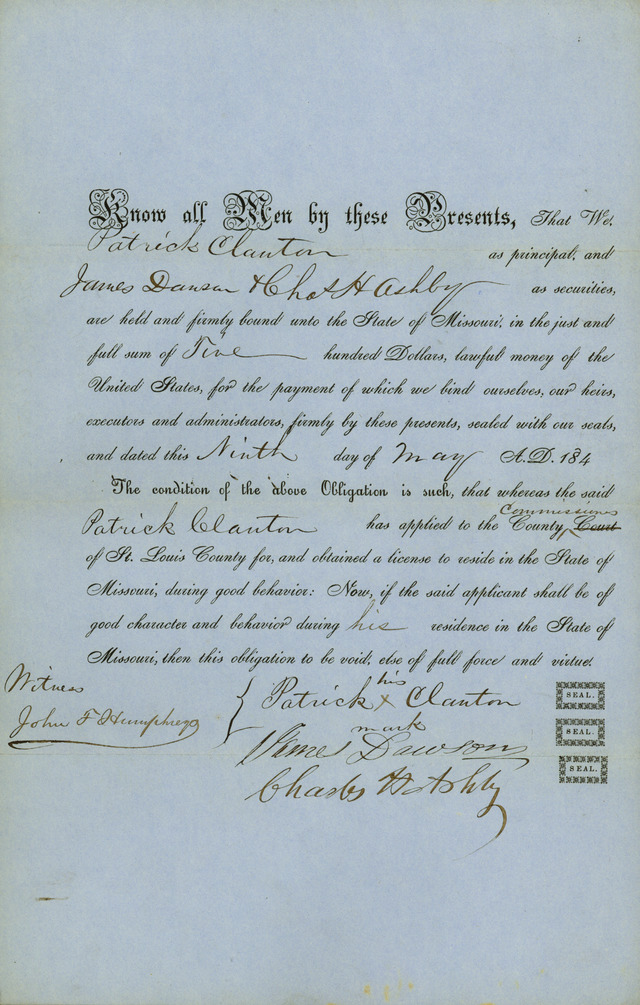 Know all Men by these Presents, That We,
Patrick Clanton as principal, and
James Dawson & Chas H Ashby as securities,
are held and firmly bound unto the State of Missouri, in the just and
full sum of Five hundred Dollars, lawful money of the
United States, for the payment of which we bind ourselves, our heirs,
executors and administrators, firmly by these presents, sealed with our seals,
and dated this Ninth day of May A.D. 184
The condition of the above Obligation is such, that whereas the said
Commissioners
Patrick Clanton has applied to the County Court
of St. Louis County for, and obtained a license to reside in the State of
Missouri, during good behavior: Now, if the said applicant shall be of
good character and behavior during his residence in the State of
Missouri, then this obligation to be void, else of full force and virtue.
Witness
John F Humphreys
his
Patrick x Clanton SEAL.
mark
James Dawson SEAL.
Charles H Ashby SEAL.